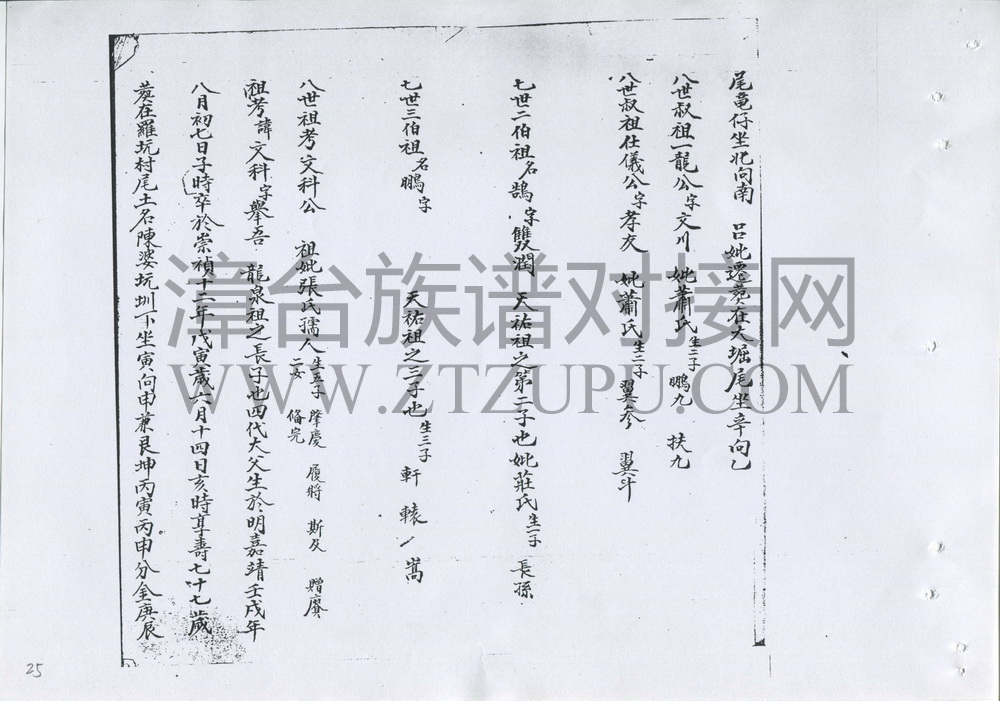 尾竜仔坐北向南　呂妣遷葬在大堀尾坐辛向乙
八世叔祖一龍公字文川　妣蕭氏生二子　鵬九　扶九
八世叔祖仕儀公字孝友　妣蕭氏生二子　翼參　翼斗
七世二伯祖名鵠字雙潤　天祐祖之第二子也妣莊氏生一子　長孫
七世三伯祖名鵬字　天祐祖之三子也生三子　軒　轅　嵩
八世祖考文科公　祖妣張氏孺人生五子二女　肇慶　履將　斯及　贈賡　脩完
祖考諱文科字舉吾　龍泉祖之長子也四代大父生於明嘉靖壬戌年
八月初七日子時卒於崇禎十二年戊寅歲六月十四日亥時享壽七十七歲
葬在羅坑村尾土名陳婆坑圳下坐寅向申兼艮坤丙寅丙申分金庚辰
漳台族谱对接网
WWW.ZTZUPU.COM
25